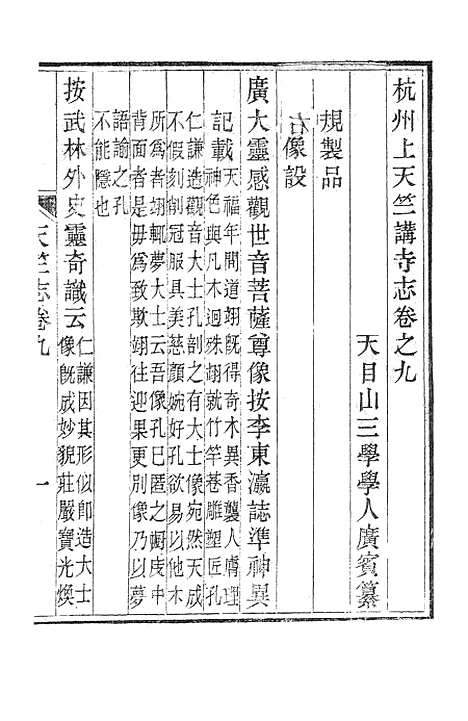 杭州上天竺講寺志卷之九
天目山三學學人廣賓纂
規製品
古像設
廣大靈感觀世音菩薩尊像按李東瀛誌準神異
記載
天福年間道翊既得奇木異香襲人膚理
神色與凡木迥殊翊就竹竿巷雕塑匠孔
仁謙造觀音大士孔剖之有大士像宛然天成
不假刻削冠服具美慈顏婉好孔欲易以他木
所為者翊輒夢大士云吾像孔已匿之廚庋中
背面者是毋為致欺翊往迎果更別像乃以夢
語諭之孔
不能隱也
按武林外史靈奇識云
仁謙因其形似卽造大士
像旣成妙貌莊嚴寶光煥
天竺志卷九
一